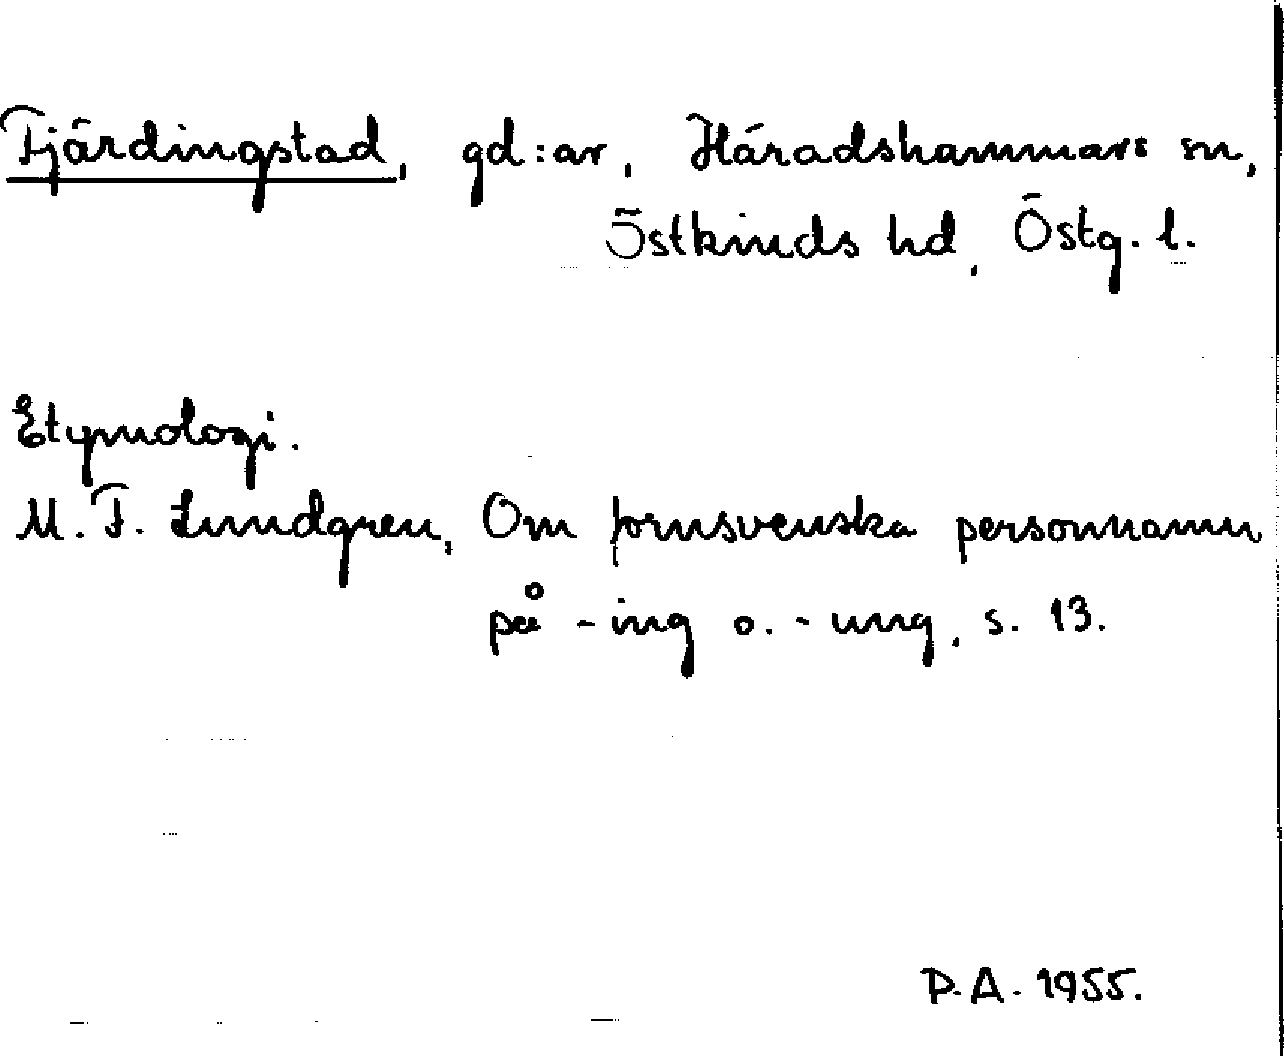 Fjärdingstad, gd:ar, Häradshammars sn,
Östkinds hd, Östg. l.
Etymologi.
M. F. Lundgren, Om fornsvenska personnamn
på -ing o. -ung, s. 13.
P.A. 1955.